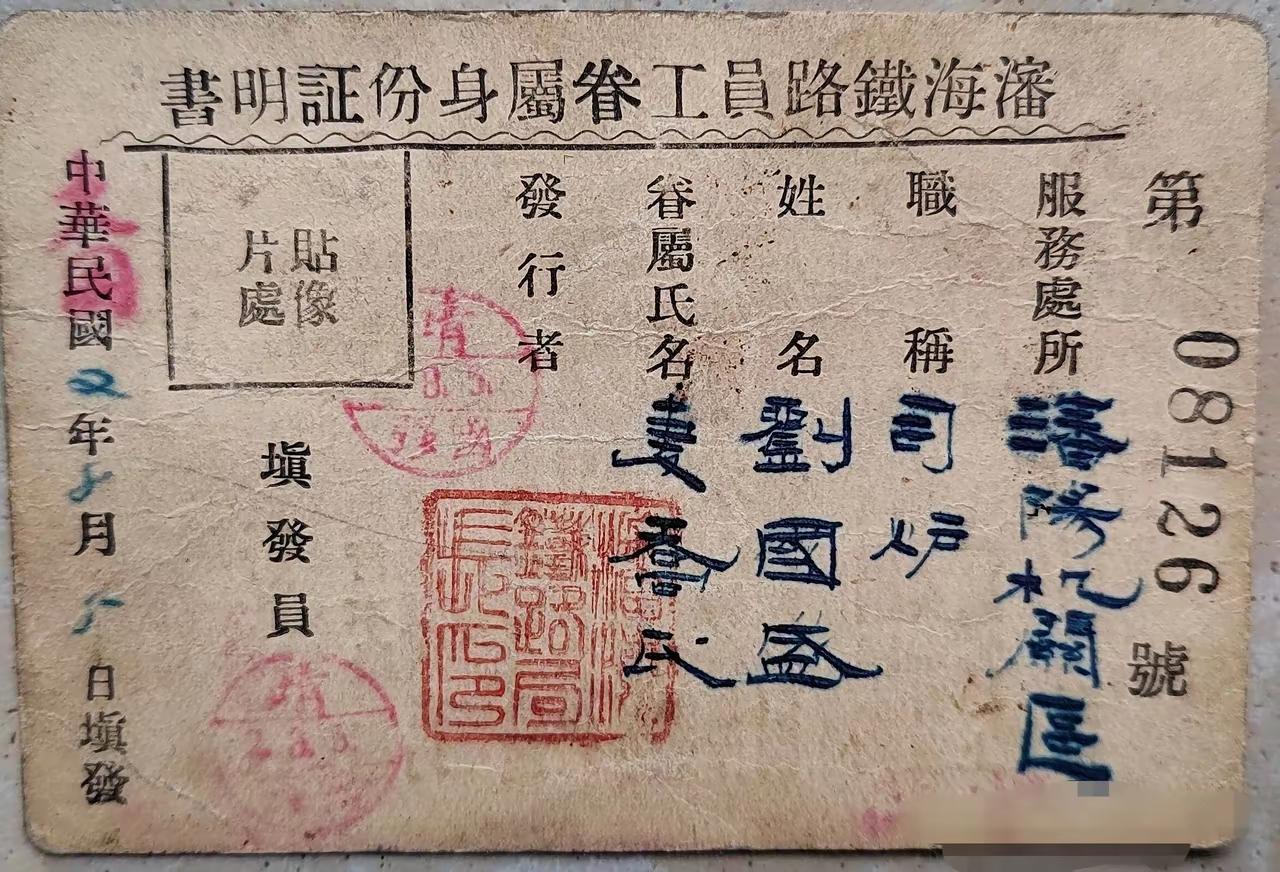 瀋海鐵路員工眷屬身份証明書
第 08126 號
服務處所 瀋陽机關區
職稱 司炉
姓名 劉國益
眷屬氏名 妻 喬氏
發行者
鐵路局
填發員
貼像
片處
中華民國 年 月 日填發